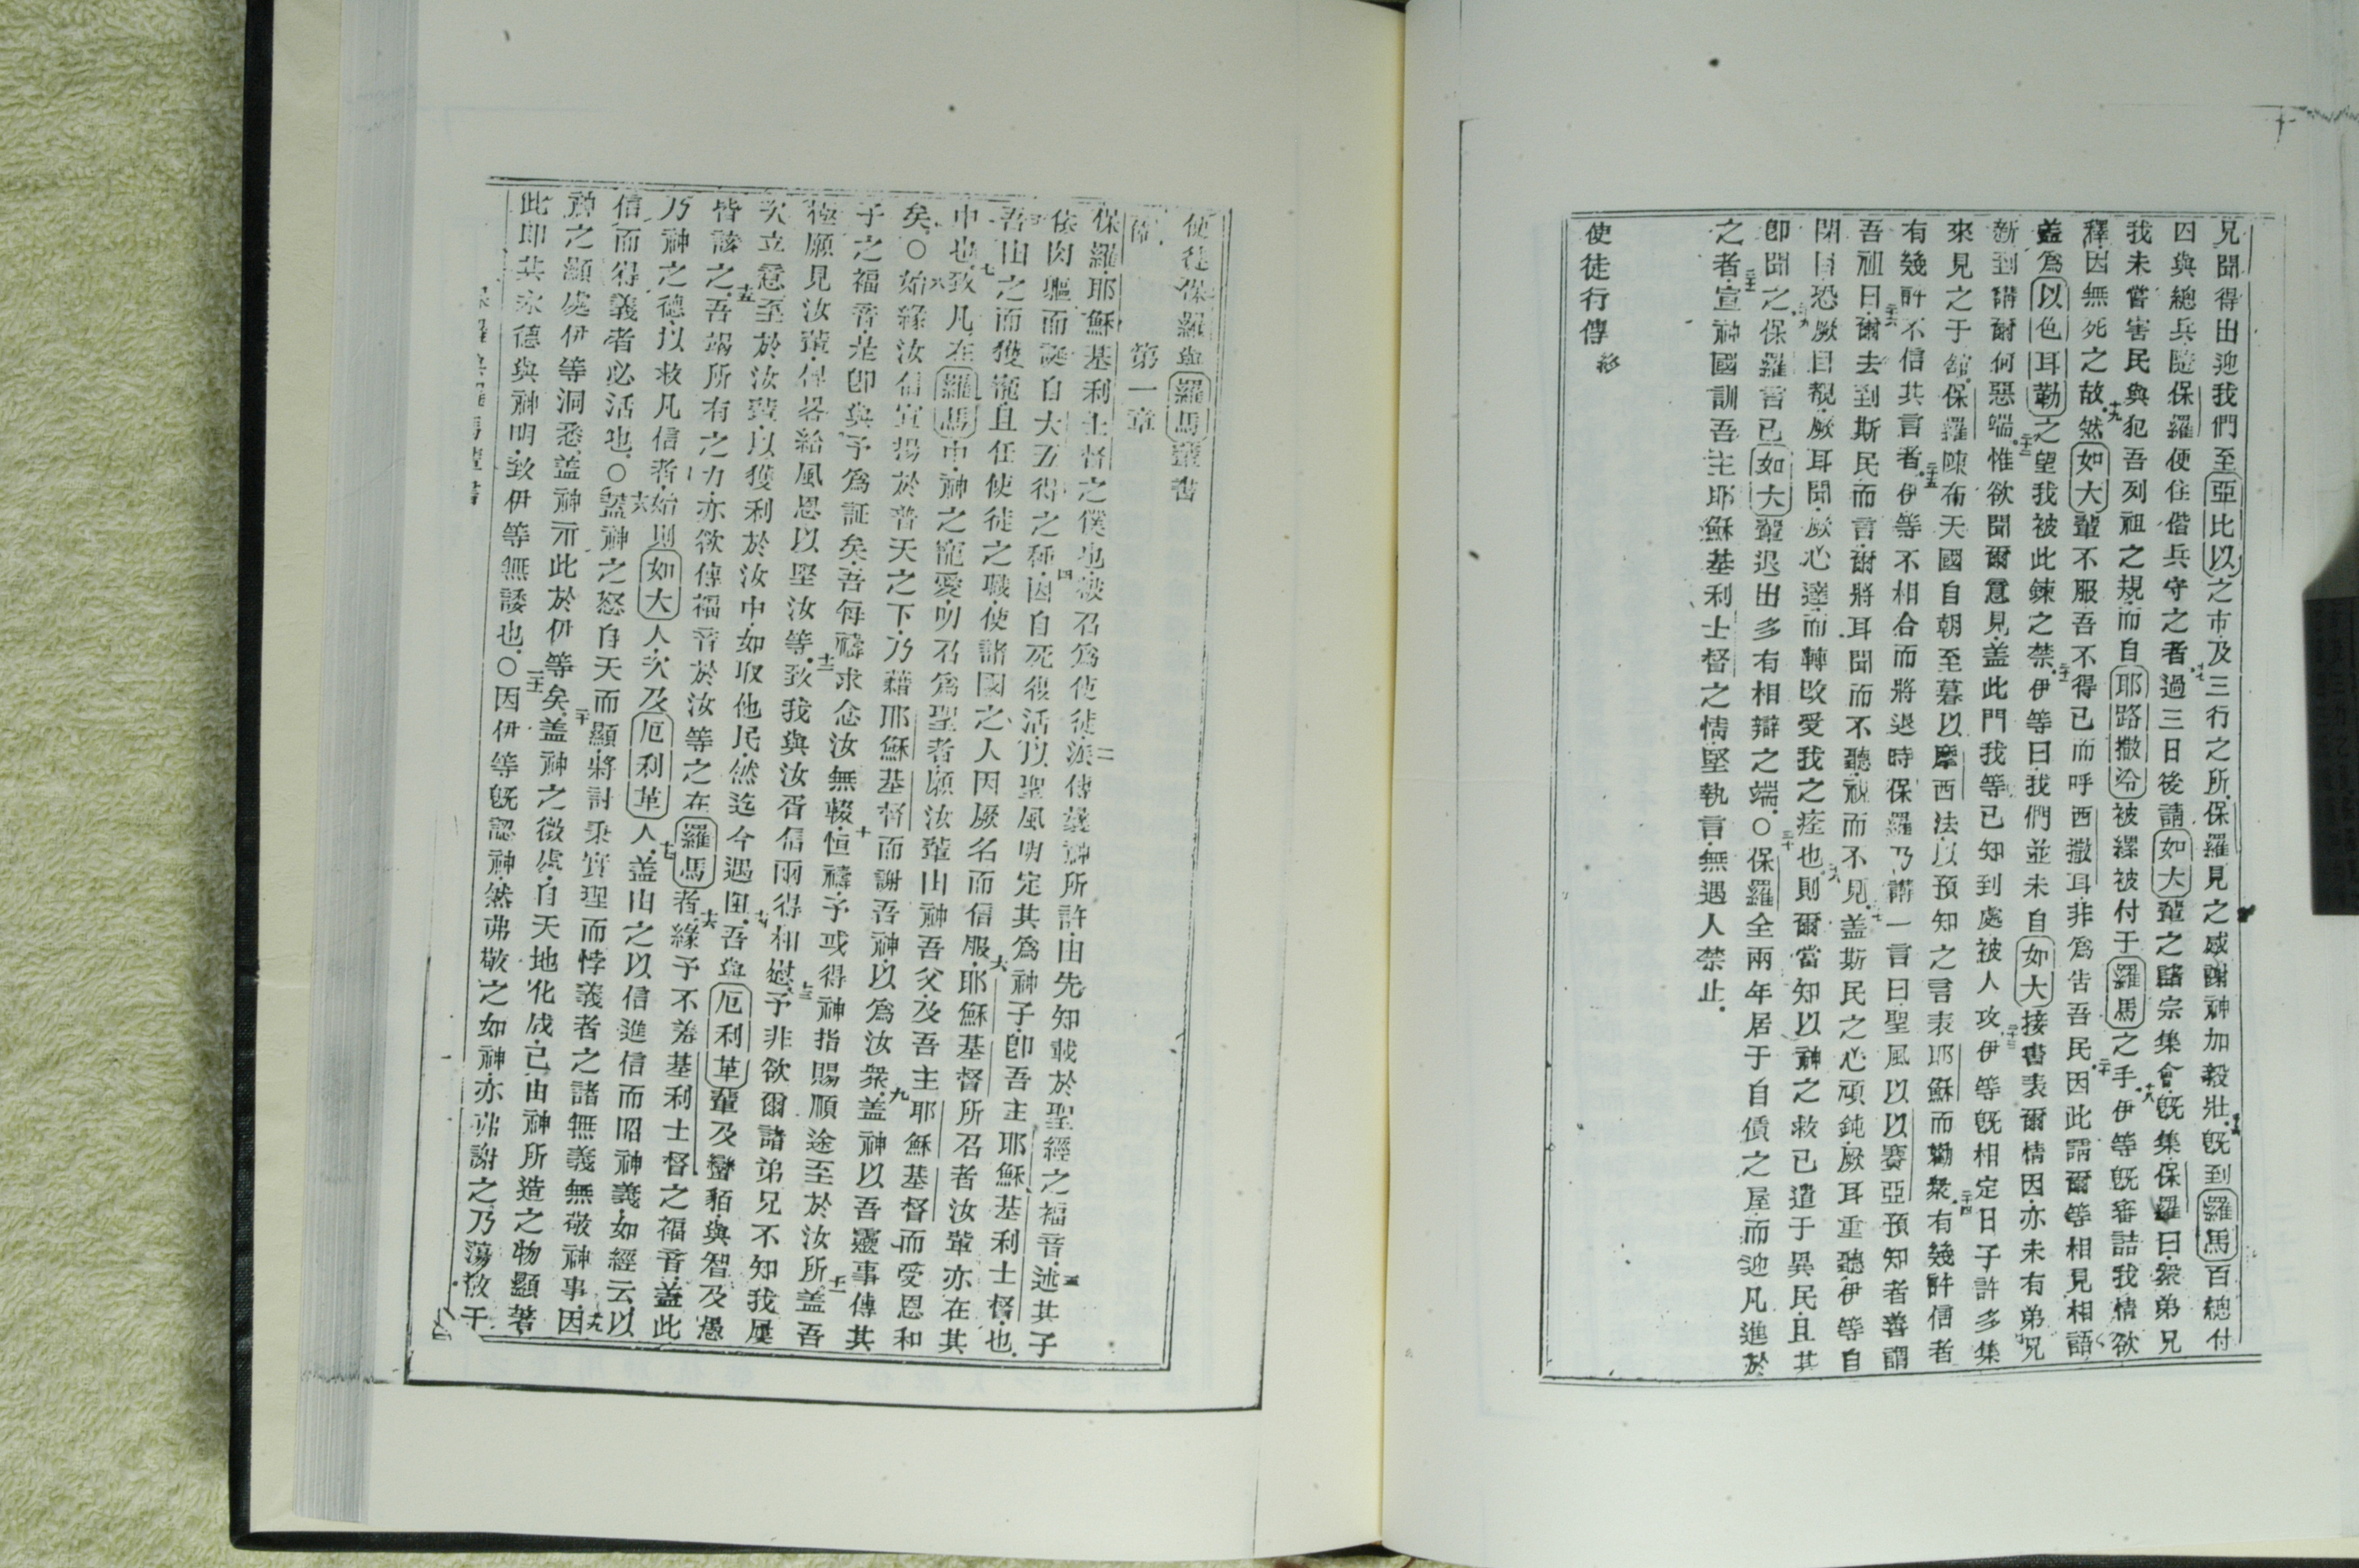 兄聞得出迎我們至亞比以之市及三行之所保羅見之感謝神加毅壯既到羅馬百總付
囚與總兵隨保羅便住偕兵守之者過三日後請如大輩之諸宗集會既集保羅曰衆弟兄
我未嘗害民與犯吾列祖之規而自耶路撒冷被縲被付于羅馬之手伊等既審詰我情欲
釋因無死之故然如大輩不服吾不得已而呼西撒耳非為吿吾民因此請爾等相見相語
蓋為以色耳勒之望我被此鍊之禁伊等曰我們並未自如大接書表爾情因亦未有弟兄
新到講爾何惡端惟欲聞爾意見盖此門我等已知到處被人攻伊等旣相定日子許多集
來見之于舘保羅陳布天國自朝至暮以摩西法以預知之言表耶穌而勸衆有幾許信者
有幾許不信其言者伊等不相合而將退時保羅乃講一言曰聖風以以賽亞預知者善謂
吾祖曰爾去到斯民而言爾將耳聞而不聽視而不見盖斯民之心頑鈍厥耳重聽伊等自
閉目恐厥目覩厥耳聞厥心達而轉改受我之痊也則爾當知以神之救已遣于異民且其
即聞之保羅言已如大輩退出多有相辯之端○保羅全兩年居于自賃之屋而迎凡進於
之者宣神國訓吾主耶穌基利士督之情堅執言無遇人禁止
使徒行傳 終
使徒保羅與羅馬輩書
第一章
保羅耶穌基利士督之僕也被召為使徒派傳襄神所許由先知載於聖經之福音述其子
依肉軀而誕自大五得之種因自死復活以聖風明定其為神子即吾主耶穌基利士督也
吾由之而獲寵且任使徒之職使諸國之人因厥名而信服耶穌基督所召者汝輩亦在其
中也致凡在羅馬中神之寵愛叨召為聖者願汝輩由神吾父及吾主耶穌基督而受恩和
矣○始緣汝信宣揚於普天之下乃藉耶穌基督而謝吾神以為汝衆盖神以吾靈事傳其
子之福音是即與予為証矣吾每禱求念汝無輟恒禱予或得神指賜順途至於汝所盖吾
極願見汝輩俾畧給風恩以堅汝等致我與汝胥信兩得相慰予非欲爾諸弟兄不知我屢
次立意至於汝輩以獲利於汝中如取他民然迄今遇阻吾與厄利革輩及蠻貊與智及愚
皆該之吾竭所有之力亦欲傳福音於汝等之在羅馬者緣予不羞基利士督之福音盖此
乃神之德以救凡信者始則如大人次及厄利革人盖由之以信進信而昭神義如經云以
信而得義者必活也○盖神之怒自天而顯將討秉實理而悖義者之諸無義無敬神事因
神之顯處伊等洞悉盖神示此於伊等矣盖神之微處自天地化成已由神所造之物顯著
此即其永德與神明致伊等無諉也○因伊等旣認神然弗敬之如神亦弗謝之乃蕩散于